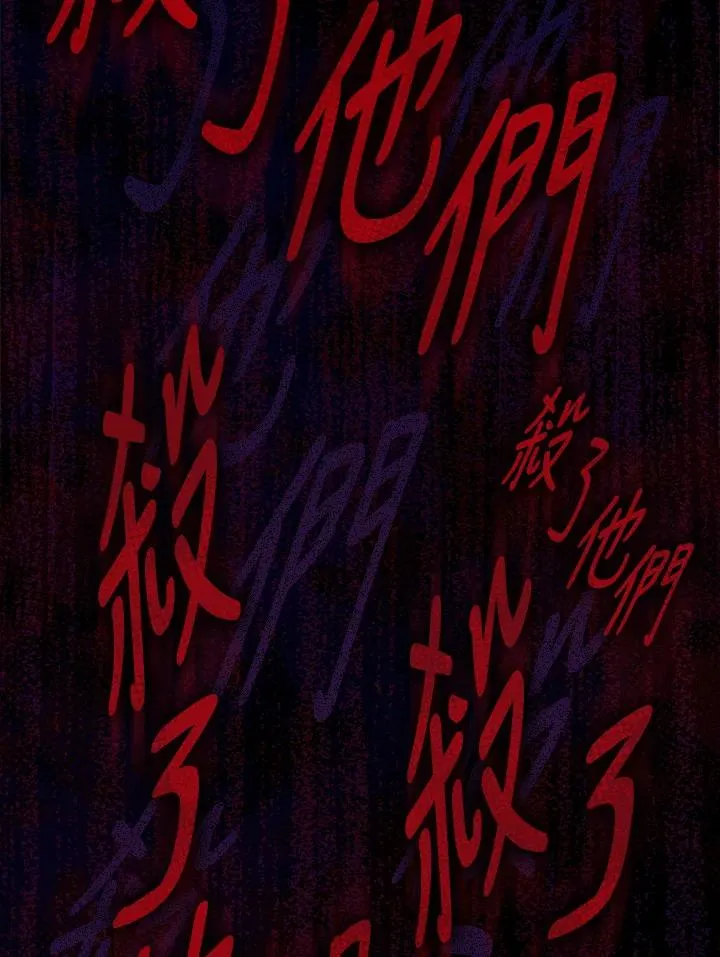 殺了他們
殺了他們
殺了
殺了